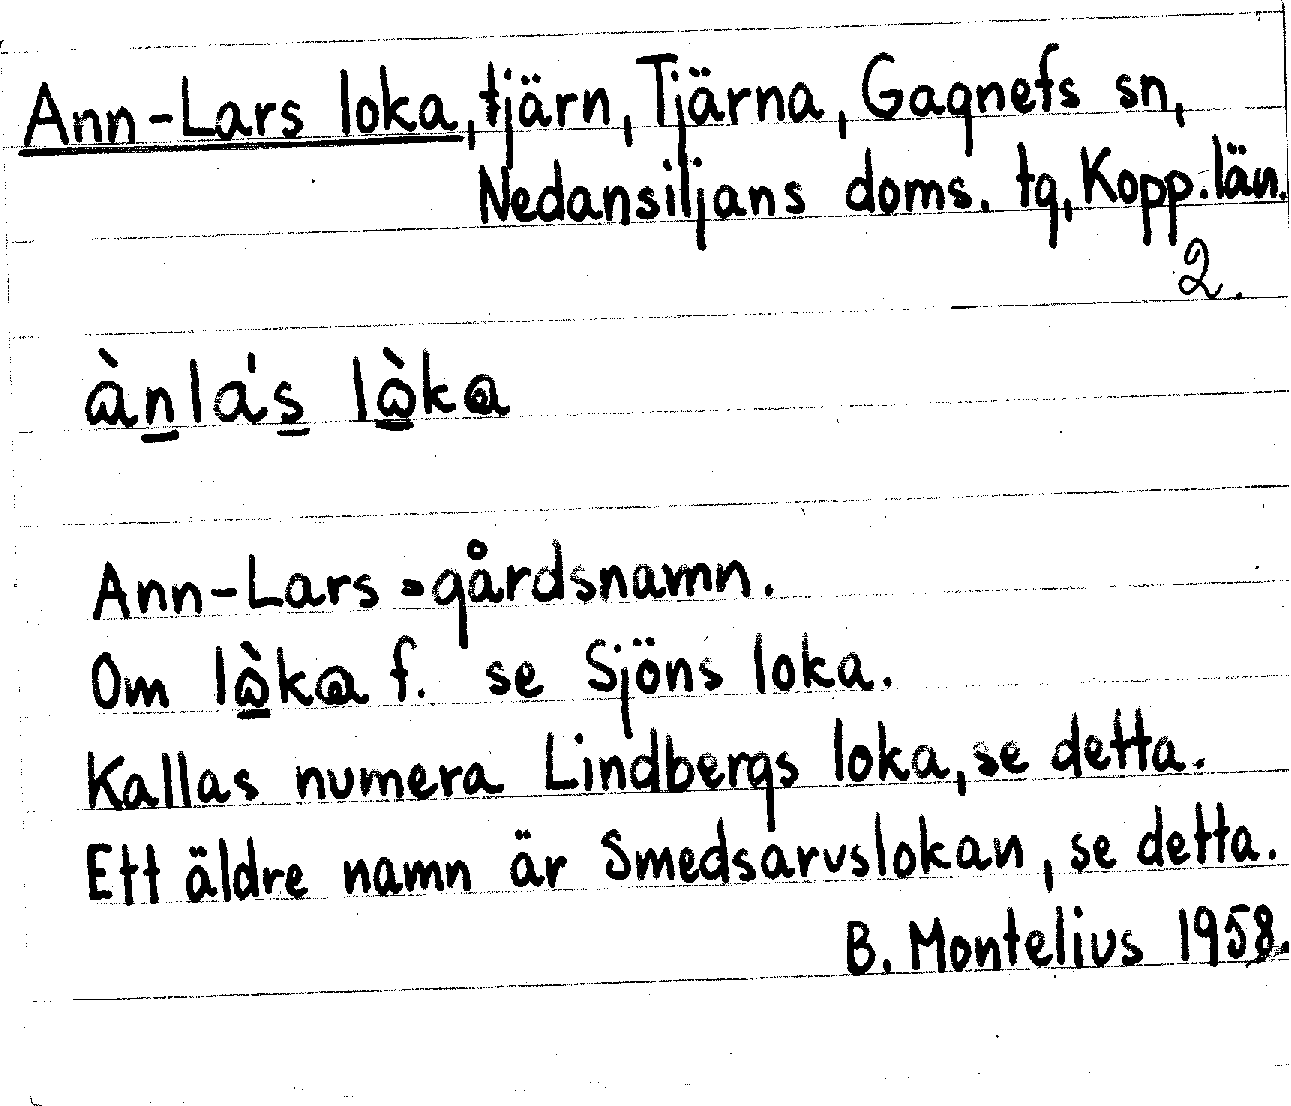 Ann-Lars loka, tjärn, Tjärna, Gagnefs sn,
Nedansiljans doms. tg, Kopp. län.
2.
ànla's lòka
Ann-Lars = gårdsnamn.
Om lòka f. se Sjöns loka.
Kallas numera Lindbergs loka, se detta.
Ett äldre namn är Smedsarvslokan, se detta.
B. Montelius 1958.